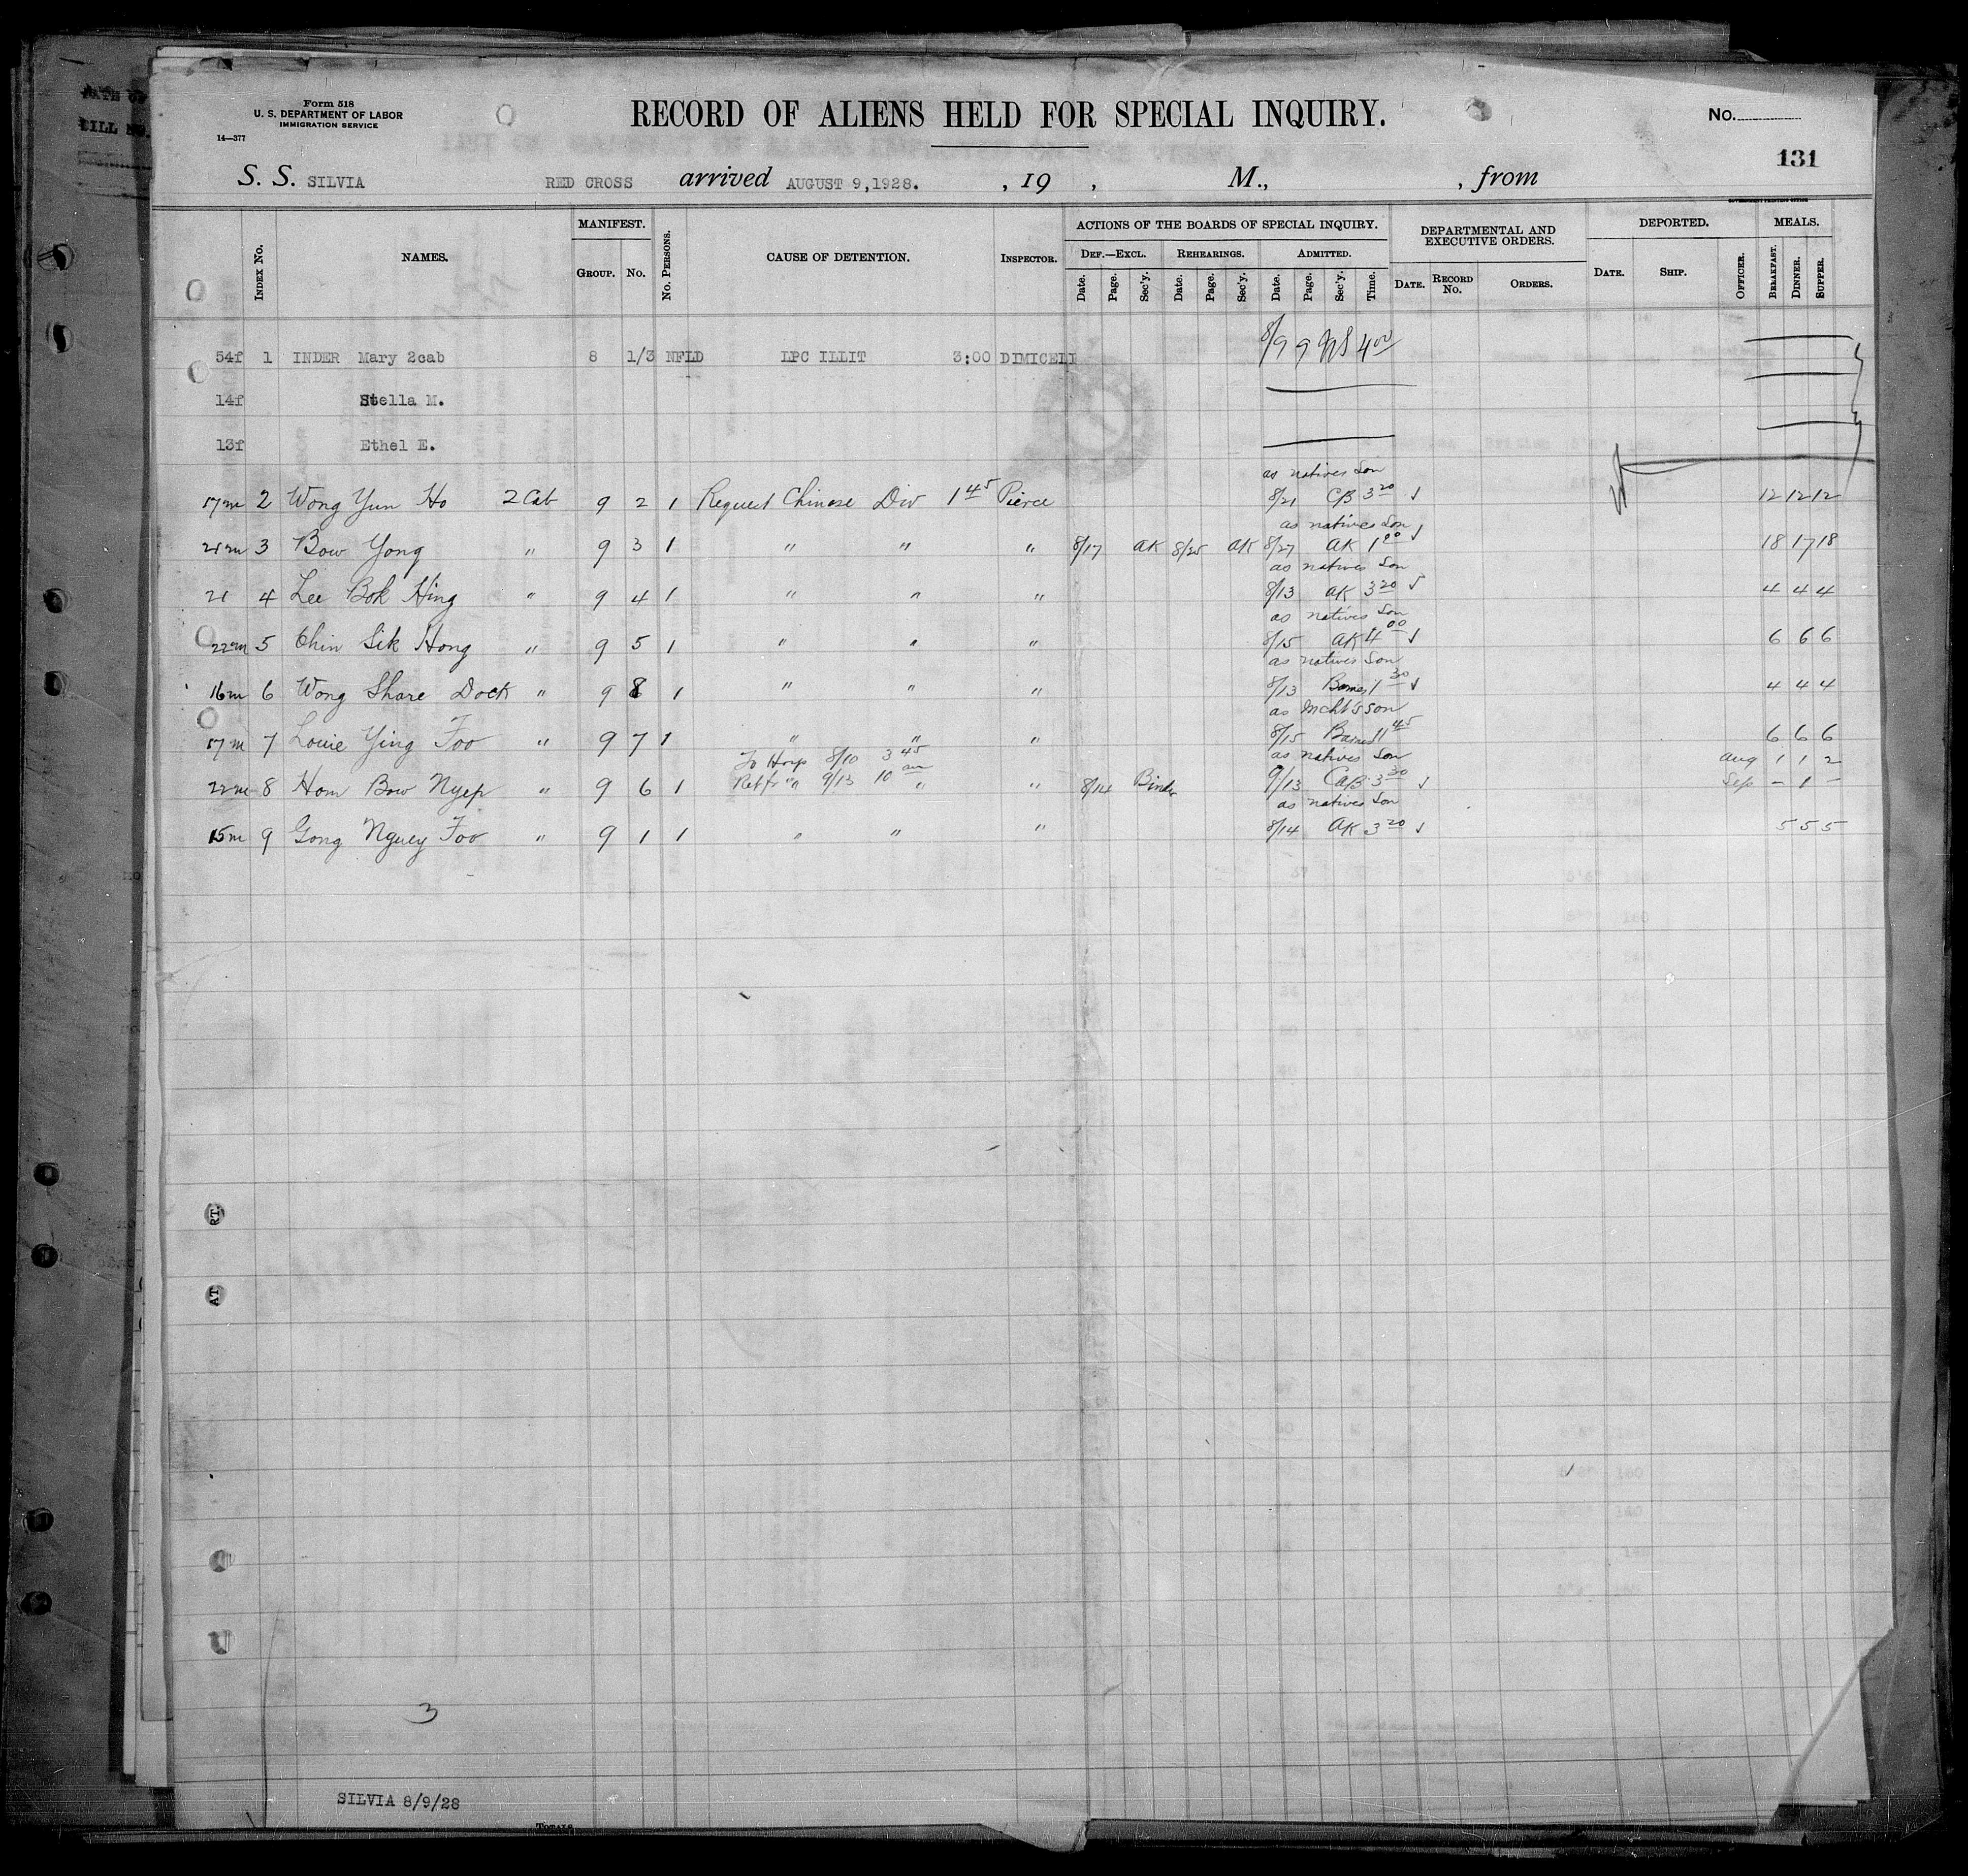 Form 518
U. S. DEPARTMENT OF LABOR
IMMIGRATION SERVICE
14—377
RECORD OF ALIENS HELD FOR SPECIAL INQUIRY.
No.
131
S. S. SILVIA RED CROSS arrived AUGUST 9,1928. , 19 , M., , from
INDEX No. NAMES. MANIFEST. GROUP. No. No. PERSONS. CAUSE OF DETENTION. INSPECTOR. ACTIONS OF THE BOARDS OF SPECIAL INQUIRY. DEF.—EXCL. REHEARINGS. ADMITTED. DEPARTMENTAL AND EXECUTIVE ORDERS. DEPORTED. MEALS.
Date. Page. Sec'y. Date. Page. Sec'y. Date. Page. Sec'y. Time. DATE. RECORD No. ORDERS. DATE. SHIP. OFFICER. BREAKFAST. DINNER. SUPPER.
54f 1 INDER Mary 2cab 8 1/3 NFLD LPC ILLIT 3:00 DIMICELI 8/9 9 4 00
14f Stella M.
13f Ethel E.
as natives Son
17m 2 Wong Yun Ho 2 Cab 9 2 1 Request Chinese Div 1 45 Pierce 8/21 CB 3 20 12 12 12
as natives Son
21m 3 Bow Yong " 9 3 1 " " " 8/17 AK 8/25 AK 8/27 AK 1 00 18 17 18
as natives Son
21 4 Lee Bok Hing " 9 4 1 " " " 8/13 AK 3 20 4 4 4
as natives Son
22m 5 Chin Sik Hong " 9 5 1 " " " 8/15 AK 4 00 6 6 6
as natives Son
16m 6 Wong Share Dock " 9 8 1 " " " 8/13 Barnes 1 30 4 4 4
as mcht's son
17m 7 Louie Ying Foo " 9 7 1 " " " 8/15 Barnes 11 45 6 6 6
To Hosp 8/10 3 45 as natives Son Aug 1 1 2
22m 8 Hom Bow Nyep " 9 6 1 Ret fr " 9/13 10 am " " 8/14 Binder 9/13 CAB 3 30 Sep - 1 -
as natives Son
15m 9 Gong Nguey Foo " 9 1 1 " " " 8/14 AK 3 20 5 5 5
RT.
AT
3
SILVIA 8/9/28
TOTALS